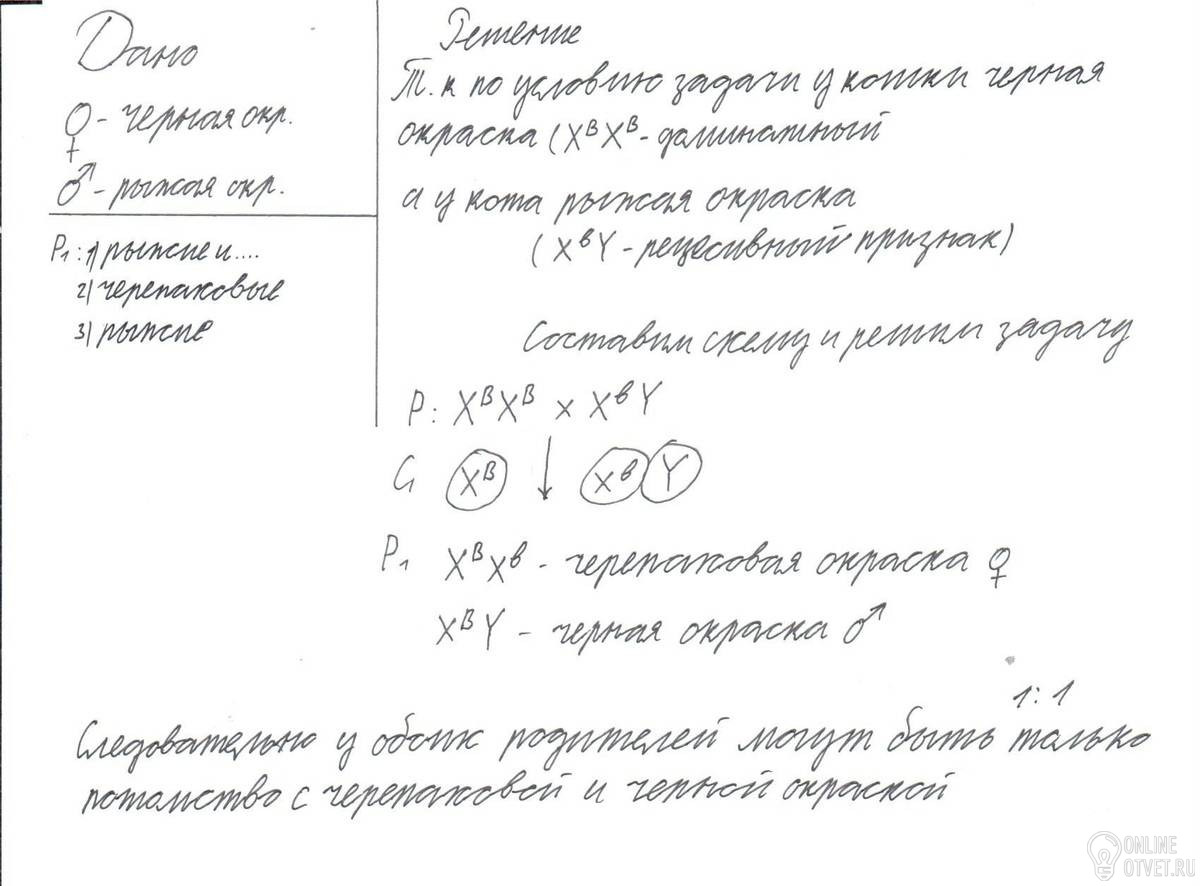 Дано
♀ - черная окр.
♂ - рыжая окр.
P₁: 1) рыжие и....
2) черепаховые
3) рыжие
Решение
Т.к по условию задачи у кошки черная
окраска (XᴮXᴮ - доминатный
а у кота рыжая окраска
(XᵇY - рецесивный признак)
Составим схему и решим задачу
P: XᴮXᴮ x XᵇY
G Xᴮ ↓ Xᵇ Y
P₁ XᴮXᵇ - черепаховая окраска ♀
XᴮY - черная окраска ♂
1:1
Следовательно у обоих родителей могут быть только
потомство с черепаховой и черной окраской
ONLINE
OTVET.RU